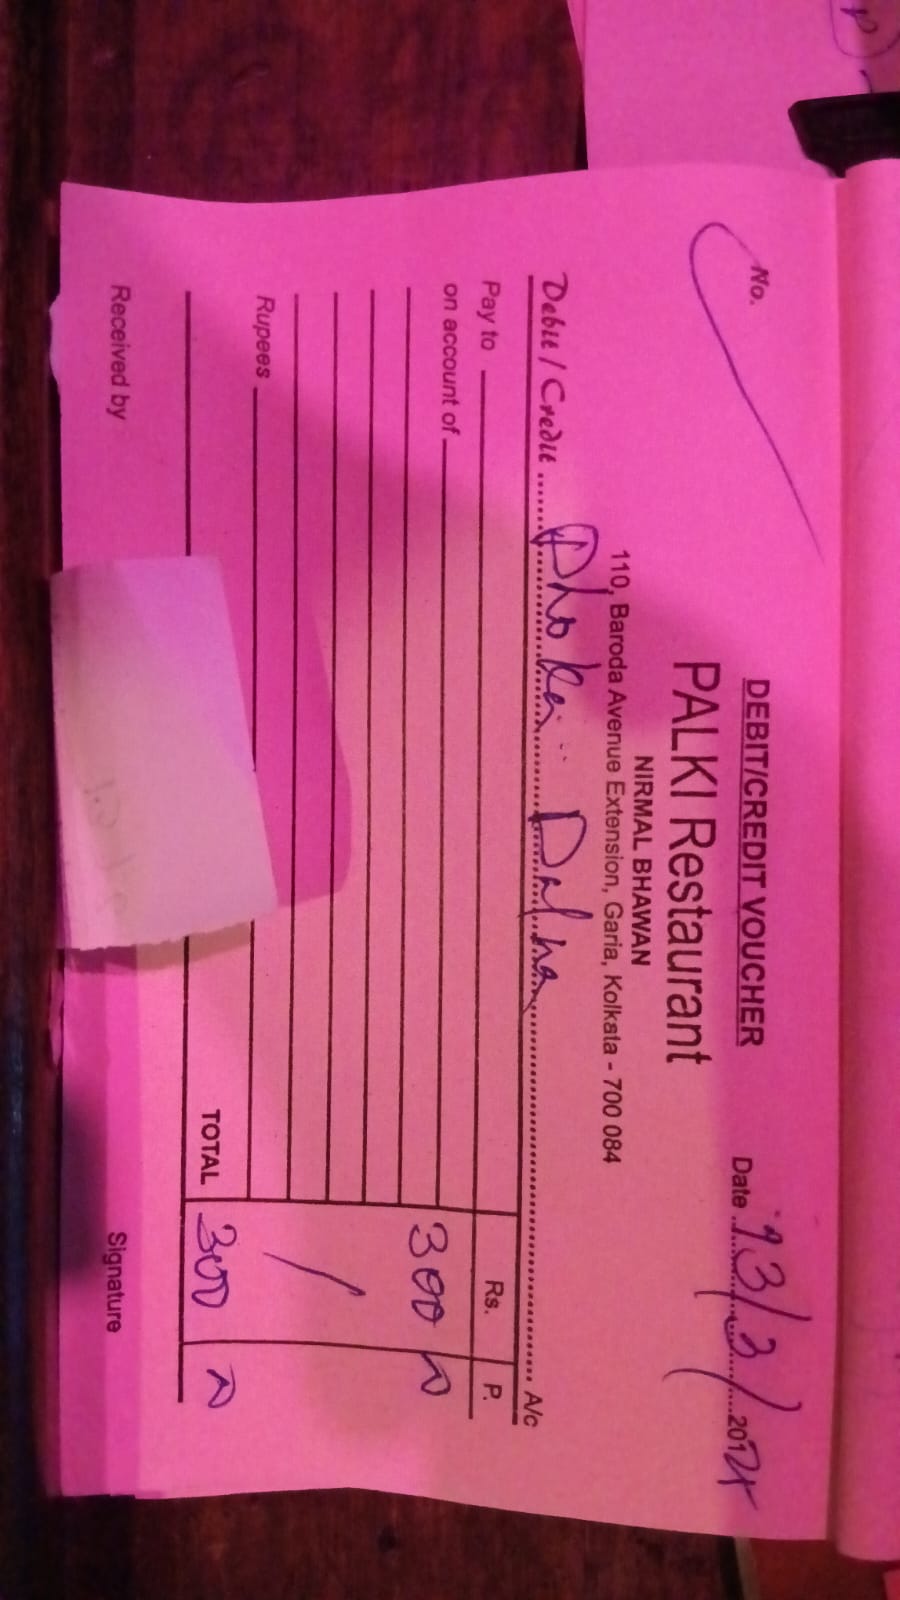 DEBIT/CREDIT VOUCHER
No.
Date 13/3/2024
PALKI Restaurant
NIRMAL BHAWAN
110, Baroda Avenue Extension, Garia, Kolkata - 700 084
Debit / Credit Dhoka Dalna A/c
Pay to
Rs. P.
on account of
300
Rupees
TOTAL 300
Received by
Signature